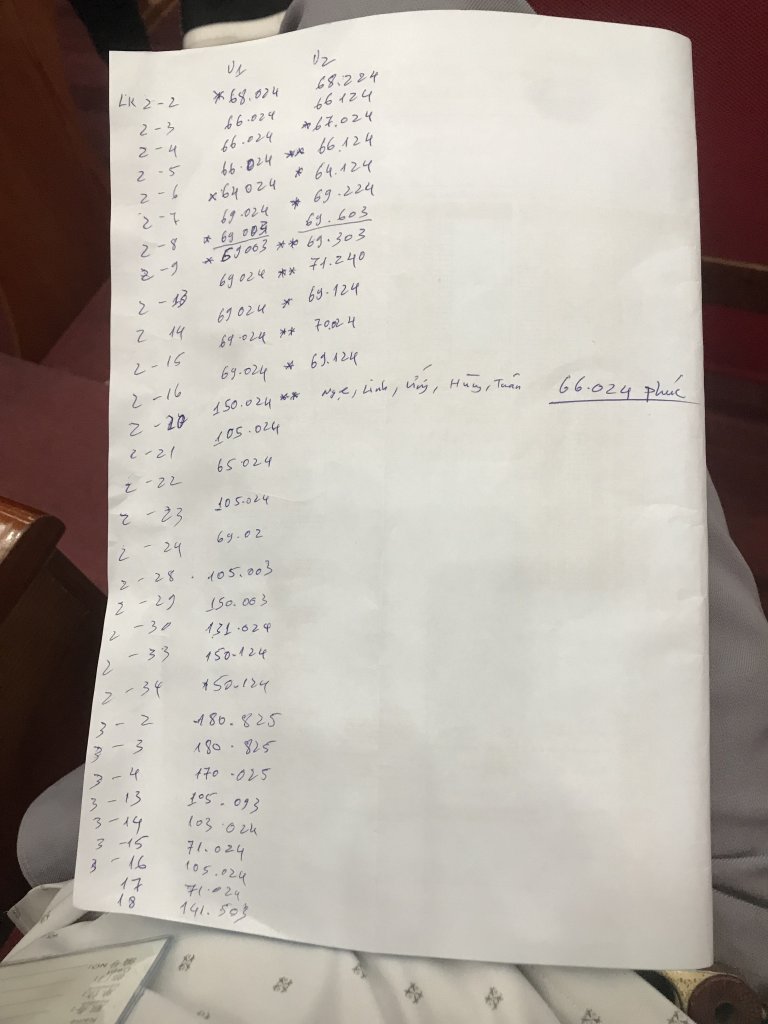 V1 V2
LK 2-2 *68.024 68.224
2-3 66.024 66124
2-4 66.024 *67.024
2-5 66.024 ** 66.124
2-6 *64024 * 64.124
2-7 69.024 * 69.224
2-8 * 69003 69.603
2-9 * 69003 ** 69.303
2-13 69024 ** 71.240
2 14 69024 * 69.124
2-15 69.024 ** 70.024
2-16 69.024 * 69.124
2-20 150.024 ** Linh, Hùng, Tuấn 66.024 phúc
2-21 105.024
2-22 65.024
2-23 105.024
2-24 69.02
2-28 . 105.003
2-29 150.003
2-30 131.024
2-33 150.124
2-34 150.124
3-2 180.825
3-3 180.825
3-4 170.025
3-13 105.093
3-14 103.024
3-15 71.024
3-16 105.024
17 71.024
18 141.503